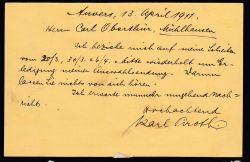 Anvers, 13. April 1911.
Herrn Carl Oberthür, Mülhausen
Ich beziehe mich auf meine Schreiben
vom 20/3, 30/3 & 6/4. & bitte wiederholt um Er-
ledigung meiner Auswahlsendung. Warum
lassen Sie nichts von sich hören.
Ich erwarte nunmehr umgehend Nach-
richt.
Hochachtend
Karl Groth